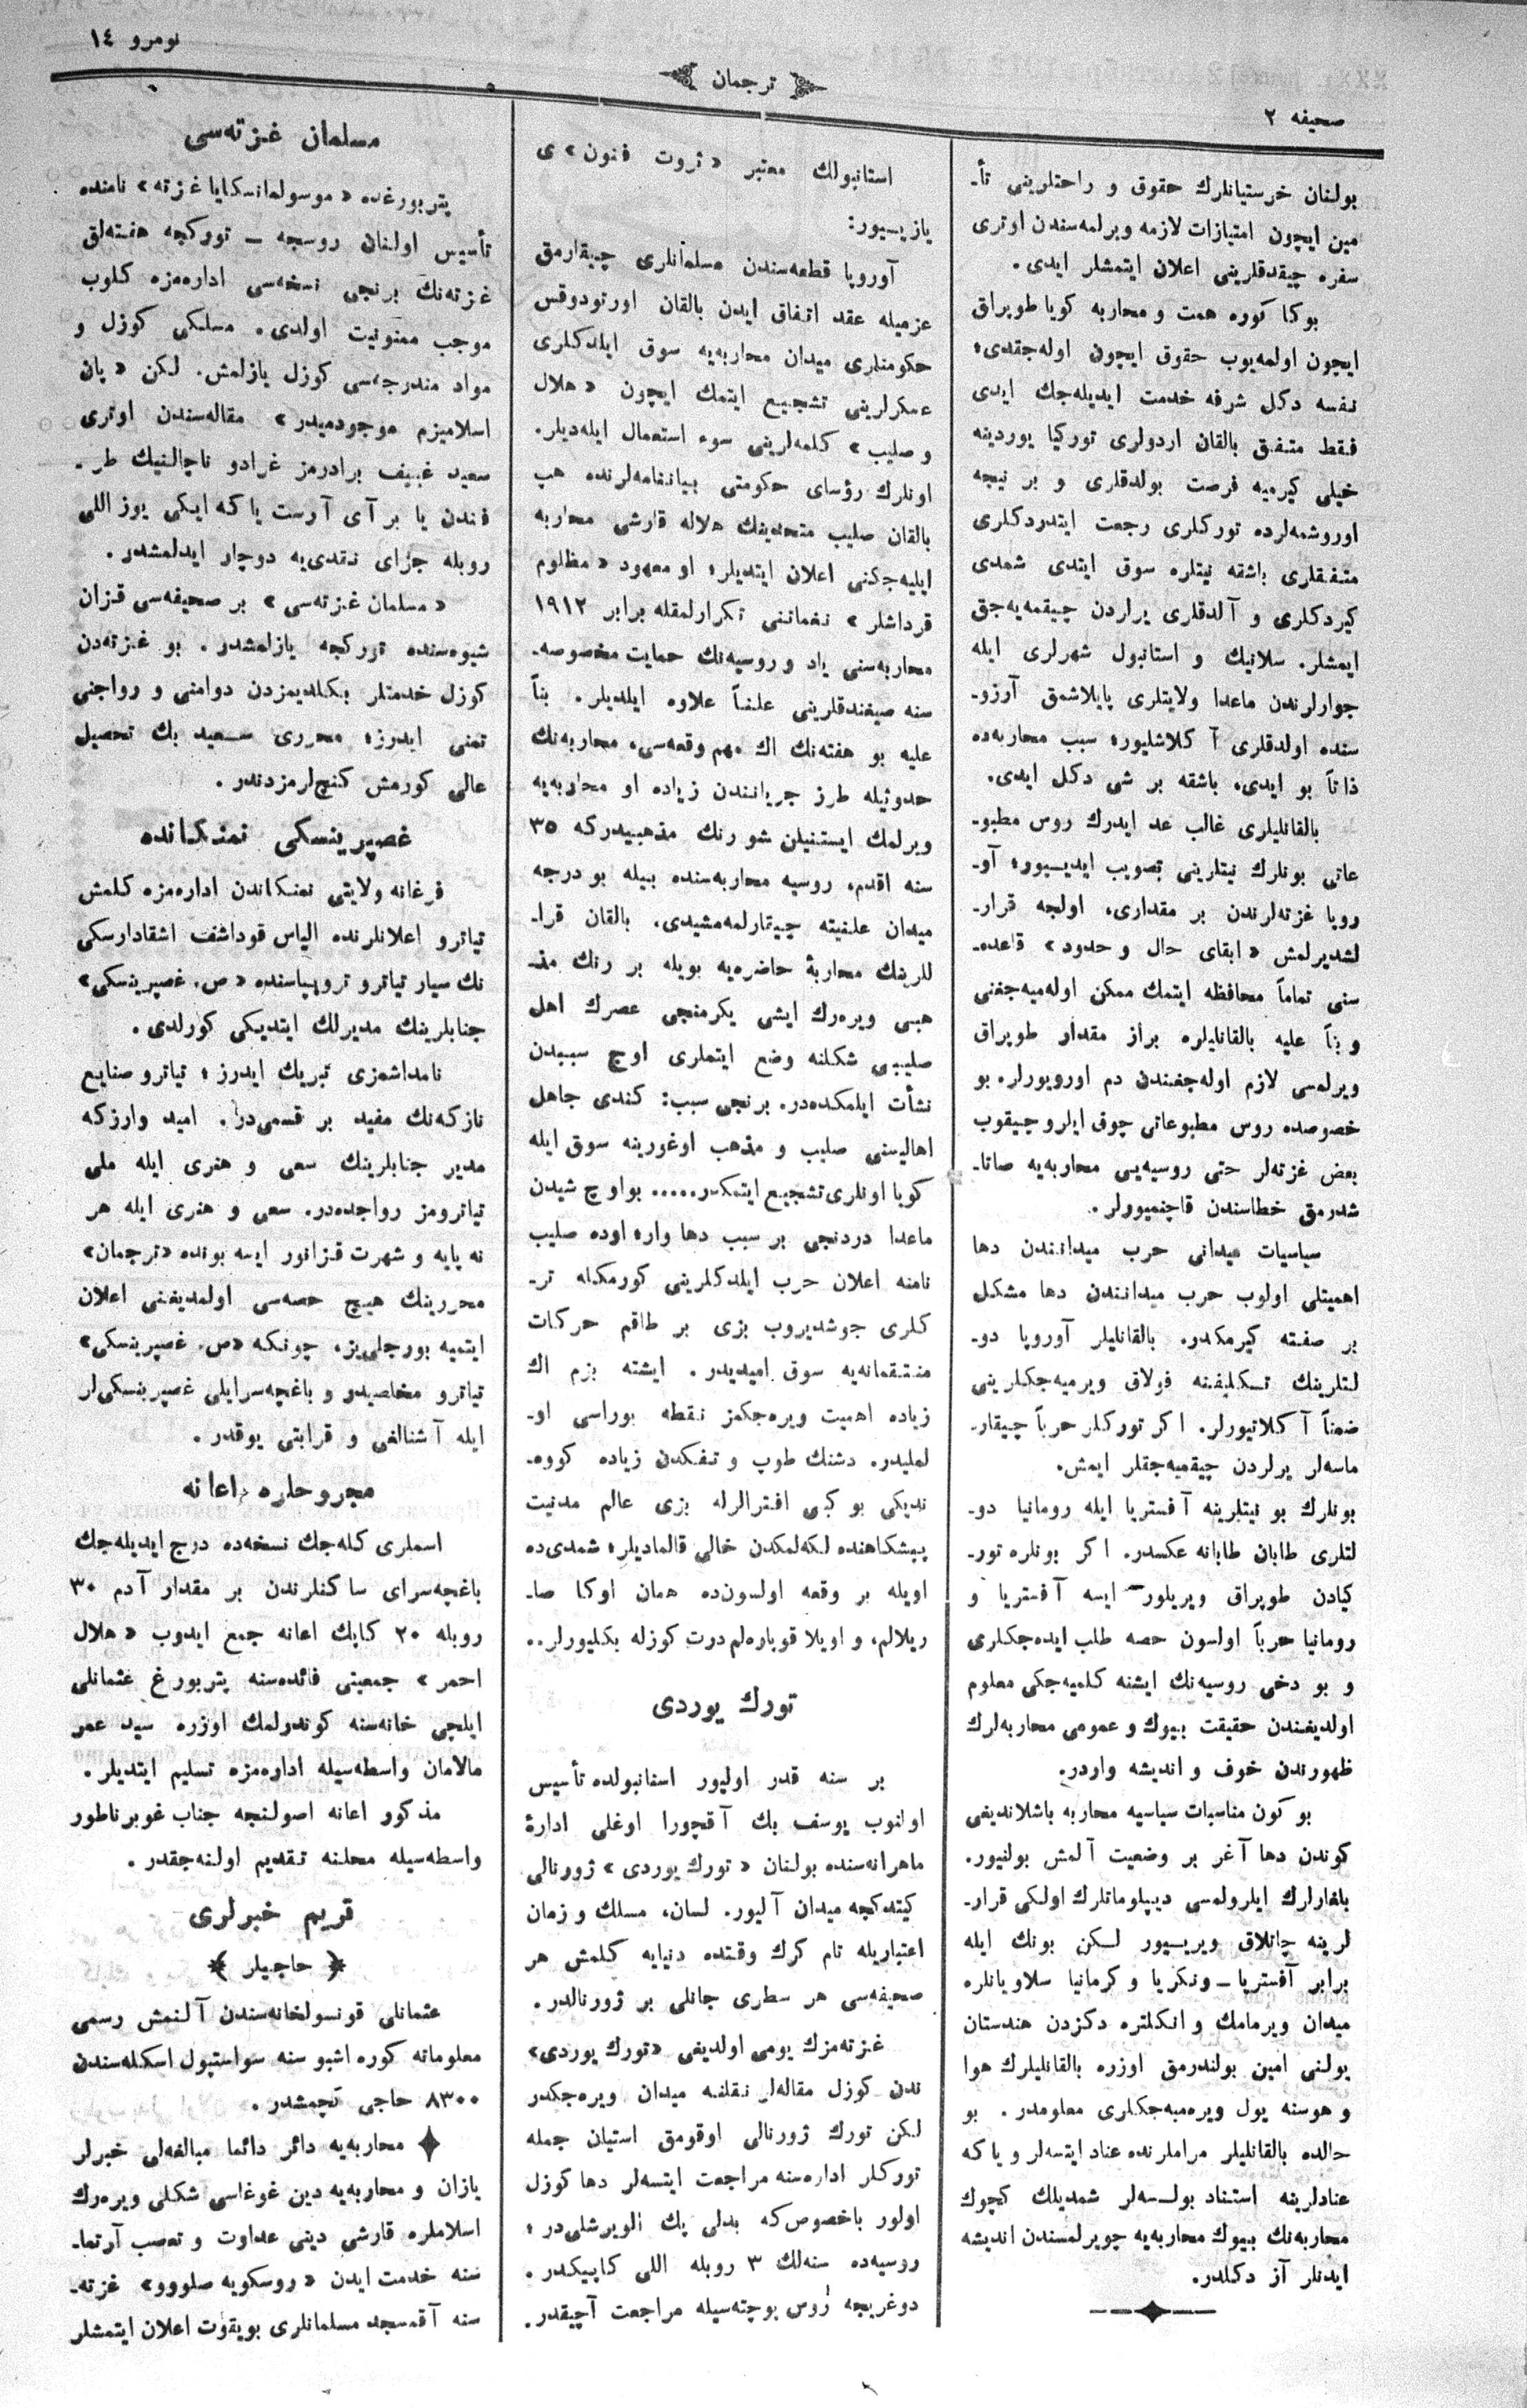 نومرو ١٤
ترجمان
صحیفه ٢
بولنان خرستیانلرك حقوق و راحتلرینی تأ‌ـ
مین ایچون امتیازات لازمه ویرلمه‌سندن اوتری
سفره چیقدقلرینی اعلان ایتمشلر ایدی.
بوكا كوره همت و محاربه كویا طوپراق
ایچون اولمه‌یوب حقوق ایچون اوله‌جقدی؛
نفسه دكل شرفه خدمت ایدیله‌جك ایدی
فقط متفق بالقان اردولری توركیا یوردینه
خیلی كیرمیه فرصت بولدقلری و بر نیچه
اوروشمه‌لرده توركلری رجعت ایتدردكلری
متفقلری باشقه نیتلره سوق ایتدی شمدی
كیردكلری و آلدقلری یرلردن چیقمه‌یه‌جق
ایمشلر. سلانیك و استانبول شهرلری ایله
جوارلرندن ماعدا ولایتلری پایلاشمق آرزو‌ـ
سنده اولدقلری آكلاشلیور؛ سبب محاربه‌ده
ذاتاً بو ایدی، باشقه بر شی دكل ایدی.
بالقانلیلری غالب عد ایدرك روس مطبو‌ـ
عاتی بونلرك نیتلرینی تصویب ایدییور؛ آو‌ـ
روپا غزته‌لرندن بر مقداری، اولجه قرار‌ـ
لشدیرلمش «ابقای حال و حدود» قاعده‌ـ
سنی تماماً محافظه ایتمك ممكن اوله‌میه‌جغنی
و بناً علیه بالقانلیلره براز مقدار طوپراق
ویرلمسی لازم اوله‌جغندن دم اورویورلر. بو
خصوصده روس مطبوعاتی چوق ایلرو چیقوب
بعض غزته‌لر حتی روسیه‌یی محاربه‌یه صاتا‌ـ
شدرمق خطاسندن قاچنمیورلر.
سیاسیات میدانی حرب میدانندن دها
اهمیتلی اولوب حرب میدانندن دها مشكل
بر صفته كیرمكدر. بالقانلیلر آوروپا دو‌ـ
لتلرینك تكلیفنه قولاق ویرمیه‌جكلرینی
ضمناً آكلاتیورلر. اكر توركلر حرباً چیقار‌ـ
ماسه‌لر یرلردن چیقمیه‌جقلر ایمش.
بونلرك بو نیتلرینه آفستریا ایله رومانیا دو‌ـ
لتلری طابان طابانه عكسدر. اكر بونلره تور‌ـ
كیادن طوپراق ویریلور ایسه آفستریا و
رومانیا حرباً اولسون حصه طلب ایده‌جكلری
و بو دخی روسیه‌نك ایشنه كلمیه‌جكی معلوم
اولدیغندن حقیقت بیوك و عمومی محاربه‌لرك
ظهورندن خوف و اندیشه واردر.
بو كون مناسبات سیاسیه محاربه باشلاندیغی
كوندن دها آغر بر وضعیت آلمش بولنیور.
بلغارلرك ایلرولمسی دیپلوماتلرك اولكی قرار‌ـ
لرینه چاتلاق ویرییور لكن بونك ایله
برابر آفستریا ـ ونكریا و كرمانیا سلاویانلره
میدان ویرمامك و انكلتره دكزدن هندستان
یولنی امین بولندرمق اوزره بالقانلیلرك هوا
و هوسنه یول ویره‌میه‌جكلری معلومدر. بو
حالده بالقانلیلر مراملرنده عناد ایتسه‌لر و یا كه
عنادلرینه استناد بولسه‌لر شمدیلك كچوك
محاربه‌نك بیوك محاربه‌یه چویرلمسندن اندیشه
ایدنلر آز دكلدر.
استانبولك معتبر «ثروت فنون» ی
یازیسیور:
آوروپا قطعه‌سندن مسلمانلری چیقارمق
عزمیله عقد اتفاق ایدن بالقان اورتودوقس
حكومتلری میدان محاربه‌یه سوق ایلدكلری
عسكرلرینی تشجیع ایتمك ایچون «هلال
و صلیب» كلمه‌لرینی سوء استعمال ایله‌دیلر.
اونلرك رؤسای حكومتی بیاننامه‌لرنده هپ
بالقان صلیب متحدینك هلاله قارشی محاربه
ایلیه‌جكنی اعلان ایتدیلر؛ او معهود «مظلوم
قرداشلر» نغماتنی تكرارلمقله برابر ١٩١٢
محاربه‌سنی یاد و روسیه‌نك حمایت مخصوصه‌ـ
سنه صیغندقلرینی علناً علاوه ایلدیلر. بناً
علیه بو هفته‌نك اك مهم وقعه‌سی، محاربه‌نك
حدوثیله طرز جریانندن زیاده او محاربه‌یه
ویرلمك ایستنیلن شو رنك مذهبیدركه ٣٥
سنه اقدم، روسیه محاربه‌سنده بیله بو درجه
میدان علنیته چیقارلمه‌مشیدی. بالقان قرا‌ـ
للرینك محاربۀ حاضره‌یه بویله بر رنك مذ‌ـ
هبی ویره‌رك ایشی یكرمنجی عصرك اهل
صلیبی شكلنه وضع ایتملری اوچ سببدن
نشأت ایلمكده‌در. برنجی سبب: كندی جاهل
اهالیسنی صلیب و مذهب اوغورینه سوق ایله
كویا اونلری تشجیع ایتمكدر..... بو اوچ شیدن
ماعدا دردنجی بر سبب دها وار؛ اوده صلیب
نامنه اعلان حرب ایلدكلرینی كورمكله تر‌ـ
كلری جوشدیروب بزی بر طاقم حركات
منتقمانه‌یه سوق امیدیدر. ایشته بزم اك
زیاده اهمیت ویره‌جكمز نقطه بوراسی او‌ـ
لملیدر. دشنك طوپ و تفكدن زیاده كووه‌ـ
ندیكی بو كبی افترالرله بزی عالم مدنیت
پیشكاهنده لكه‌لمكدن خالی قالمادیلر؛ شمدی‌ده
اویله بر وقعه اولسون‌ده همان اوكا صا‌ـ
ریلالم، و اویلا قوباره‌لم درت كوزله بكلیورلر..
تورك یوردی
بر سنه قدر اولیور استانبولده تأسیس
اولنوب یوسف بك آقچورا اوغلی ادارۀ
ماهرانه‌سنده بولنان «تورك یوردی» ژورنالی
كیتدكجه میدان آلیور. لسان، مسلك و زمان
اعتباریله تام كرك وقتده دنیایه كلمش هر
صحیفه‌سی هر سطری جانلی بر ژورنالدر.
غزته‌مزك یومی اولدیغی «تورك یوردی»
ندن كوزل مقاله‌لر نقلنه میدان ویره‌جكدر
لكن تورك ژورنالی اوقومق استیان جمله
توركلر اداره‌سنه مراجعت ایتسه‌لر دها كوزل
اولور باخصوص كه بدلی پك الویرشلی‌در؛
روسیه‌ده سنه‌لك ٣ روبله اللی كاپیكدر.
دوغریجه روس پوچته‌سیله مراجعت آچیقدر.
مسلمان غزته‌سی
پتربورغده «موسولمانسكایا غزته» نامنده
تأسیس اولنان روسچه ـ توركچه هفته‌لق
غزته‌نك برنجی نسخه‌سی اداره‌مزه كلوب
موجب ممنونیت اولدی. مسلكی كوزل و
مواد مندرجه‌سی كوزل یازلمش. لكن «پان
اسلامیزم موجودمیدر» مقاله‌سندن اوتری
سعید غبیف برادرمز غرادو ناچالنیك طر‌ـ
فندن یا بر آی آرست یا كه ایكی یوز اللی
روبله جزای نقدی‌یه دوچار ایدلمشدر.
«مسلمان غزته‌سی» بر صحیفه‌سی قزان
شیوه‌سنده توركچه یازلمشدر. بو غزته‌دن
كوزل خدمتلر بكلدیمزدن دوامنی و رواجنی
تمنی ایدرز؛ محرری سعید بك تحصیل
عالی كورمش كنچ‌لرمزدندر.
غصپرینسكی نمنكانده
فرغانه ولایتی نمنكاندن اداره‌مزه كلمش
تیاترو اعلانلرنده الیاس قوداشف اشقادارسكی
نك سیار تیاترو تروپپاسنده «ص. غصپرینسكی»
جنابلرینك مدیرلك ایتدیكی كورلدی.
نامداشمزی تبریك ایدرز؛ تیاترو صنایع
نازكه‌نك مفید بر قسمی‌در. امید وارزكه
مدیر جنابلرینك سعی و هنری ایله ملی
تیاترومز رواجده‌در. سعی و هنری ایله هر
نه پایه و شهرت قزانور ایسه بونده «ترجمان»
محررینك هیچ حصه‌سی اولمدیغنی اعلان
ایتمیه بورجلی‌یز، چونكه «ص. غصپرینسكی»
تیاترو مخلصیدر و باغچه‌سرایلی غصپرینسكی‌لر
ایله آشنالغی و قرابتی یوقدر.
مجروحلره اعانه
اسملری كله‌جك نسخه‌ده درج ایدیله‌جك
باغچه‌سرای ساكنلرندن بر مقدار آدم ٣٠
روبله ٢٠ كاپك اعانه جمع ایدوب «هلال
احمر» جمعیتی فائده‌سنه پتربورغ عثمانلی
ایلچی خانه‌سنه كوندرلمك اوزره سید عمر
مالامان واسطه‌سیله اداره‌مزه تسلیم ایتدیلر.
مذكور اعانه اصولنجه جناب غوبرناطور
واسطه‌سیله محلنه تقدیم اولنه‌جقدر.
قریم خبرلری
﴿ حاجیلر ﴾
عثمانلی قونسولخانه‌سندن آلنمش رسمی
معلوماته كوره اشبو سنه سواستپول اسكله‌سندن
٨٣٠٠ حاجی كچمشدر.
محاربه‌یه دائر دائما مبالغه‌لی خبرلر
یازان و محاربه‌یه دین غوغاسی شكلی ویره‌رك
اسلاملره قارشی دینی عداوت و تعصب آرتما‌ـ
سنه خدمت ایدن «روسكویه صلووو» غزته‌ـ
سنه آقمسجد مسلمانلری بویقوت اعلان ایتمشلر